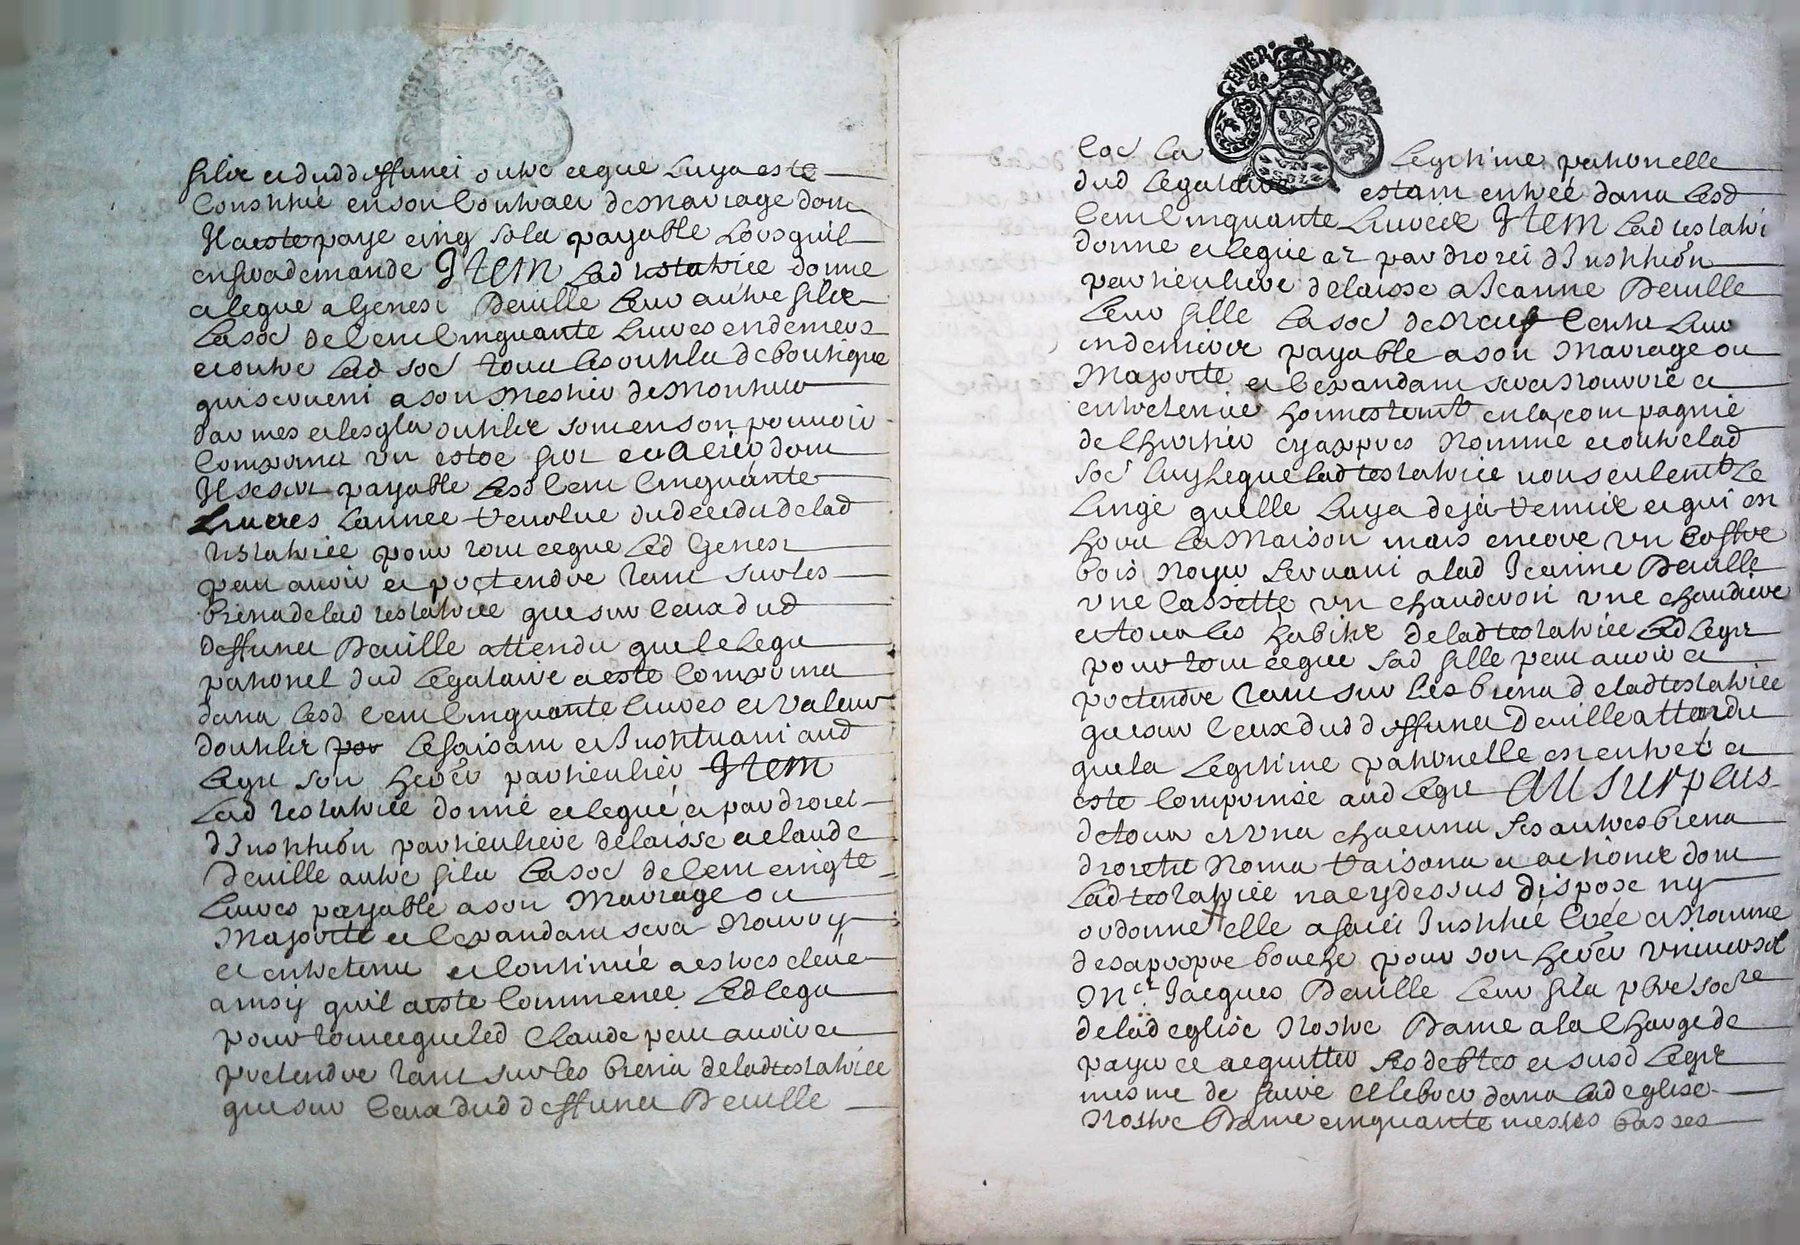 filz et dud deffunct outre ce que luy a esté
Constitué en son Contract de Mariage dont
Il a esté payé cinq solz payable Lorsquil
en fera demande Item lad testatrice donne
et legue a Genest Deville leur autre filz
La soe de Cent Cinquante Livres en deniers
et outre lad soe tous les outilz de boutique
qui servent a son mestier de Monteur
darmes et lesqlz outilz
Compoma un estoc dont
Il sera payable lesd Cent Cinquante
Livres Lannée revolue du deceds de lad
testatrice pour tout ce que led Genest
peut avoir et pretendre tant sur les
biens de lad testatrice que sur Ceux dud
deffunct Deville attendu que le legu
paternel dud Legataire a esté Comprins
dans lesd Cent Cinquante livres et valeur
doutilz le faisant et Instituant aud
legu son herer particulier Item
Lad testatrice donne et legue et par droict
dInstitution particuliere delaisse a Claude
Deville autre filz La soe de Cent vingt
Livres payable a son Mariage ou
Majorité et Cependant sera Nourry
et entretenu et Continué a estre elevé
ainsy quil a esté Commencé Led legu
pour tout ce que led Claude peut avoir et
pretendre tant sur les biens de lad testatrice
que sur Ceux dud deffunct Deville
GENER DE LYON
soe La Legitime paternelle
dud Legataire estant entrée dans lesd
Cent Cinquante Livres Item Lad testatrice
donne et legue et par droict dInstitution
particuliere delaisse a Jeanne Deville
Leur fille La soe de Neuf Cents Livres
en deniers payable a son Mariage ou
Majorité et Cependant sera Nourrie et
entretenue honnestemt en la compagnie
de lheritier cy apres Nommé et outre lad
soe luy Legue lad testatrice non seulemt le
Linge quelle luy a deja remis et qui est
hors la Maison mais encore un Coffre
bois Noyer servant a lad Jeanne Deville
une Cassette un chauderon une chaudiere
et tous les habitz de lad testatrice led legz
pour tout ce que sad fille peut avoir et
pretendre tant sur les biens de lad testatrice
que sur Ceux dud deffunct Deville attendu
que la Legitime paternelle est entrée et
esté Comprinse aud legz Au surplus
de tous et uns chacuns ses autres biens
droictz Noms raisons et actions dont
Lad testatrice na cy dessus disposé ny
ordonné elle a faict Institué Créé et Nommé
de sa propre bouche pour son herer universel
Mre Jacques Deville leur filz pbre socre
de lad eglise Nostre Dame a la Charge de
payer et acquitter ses debtes et susd legz
mesme de faire Celebrer dans lad eglise
Nostre Dame cinquante messes basses